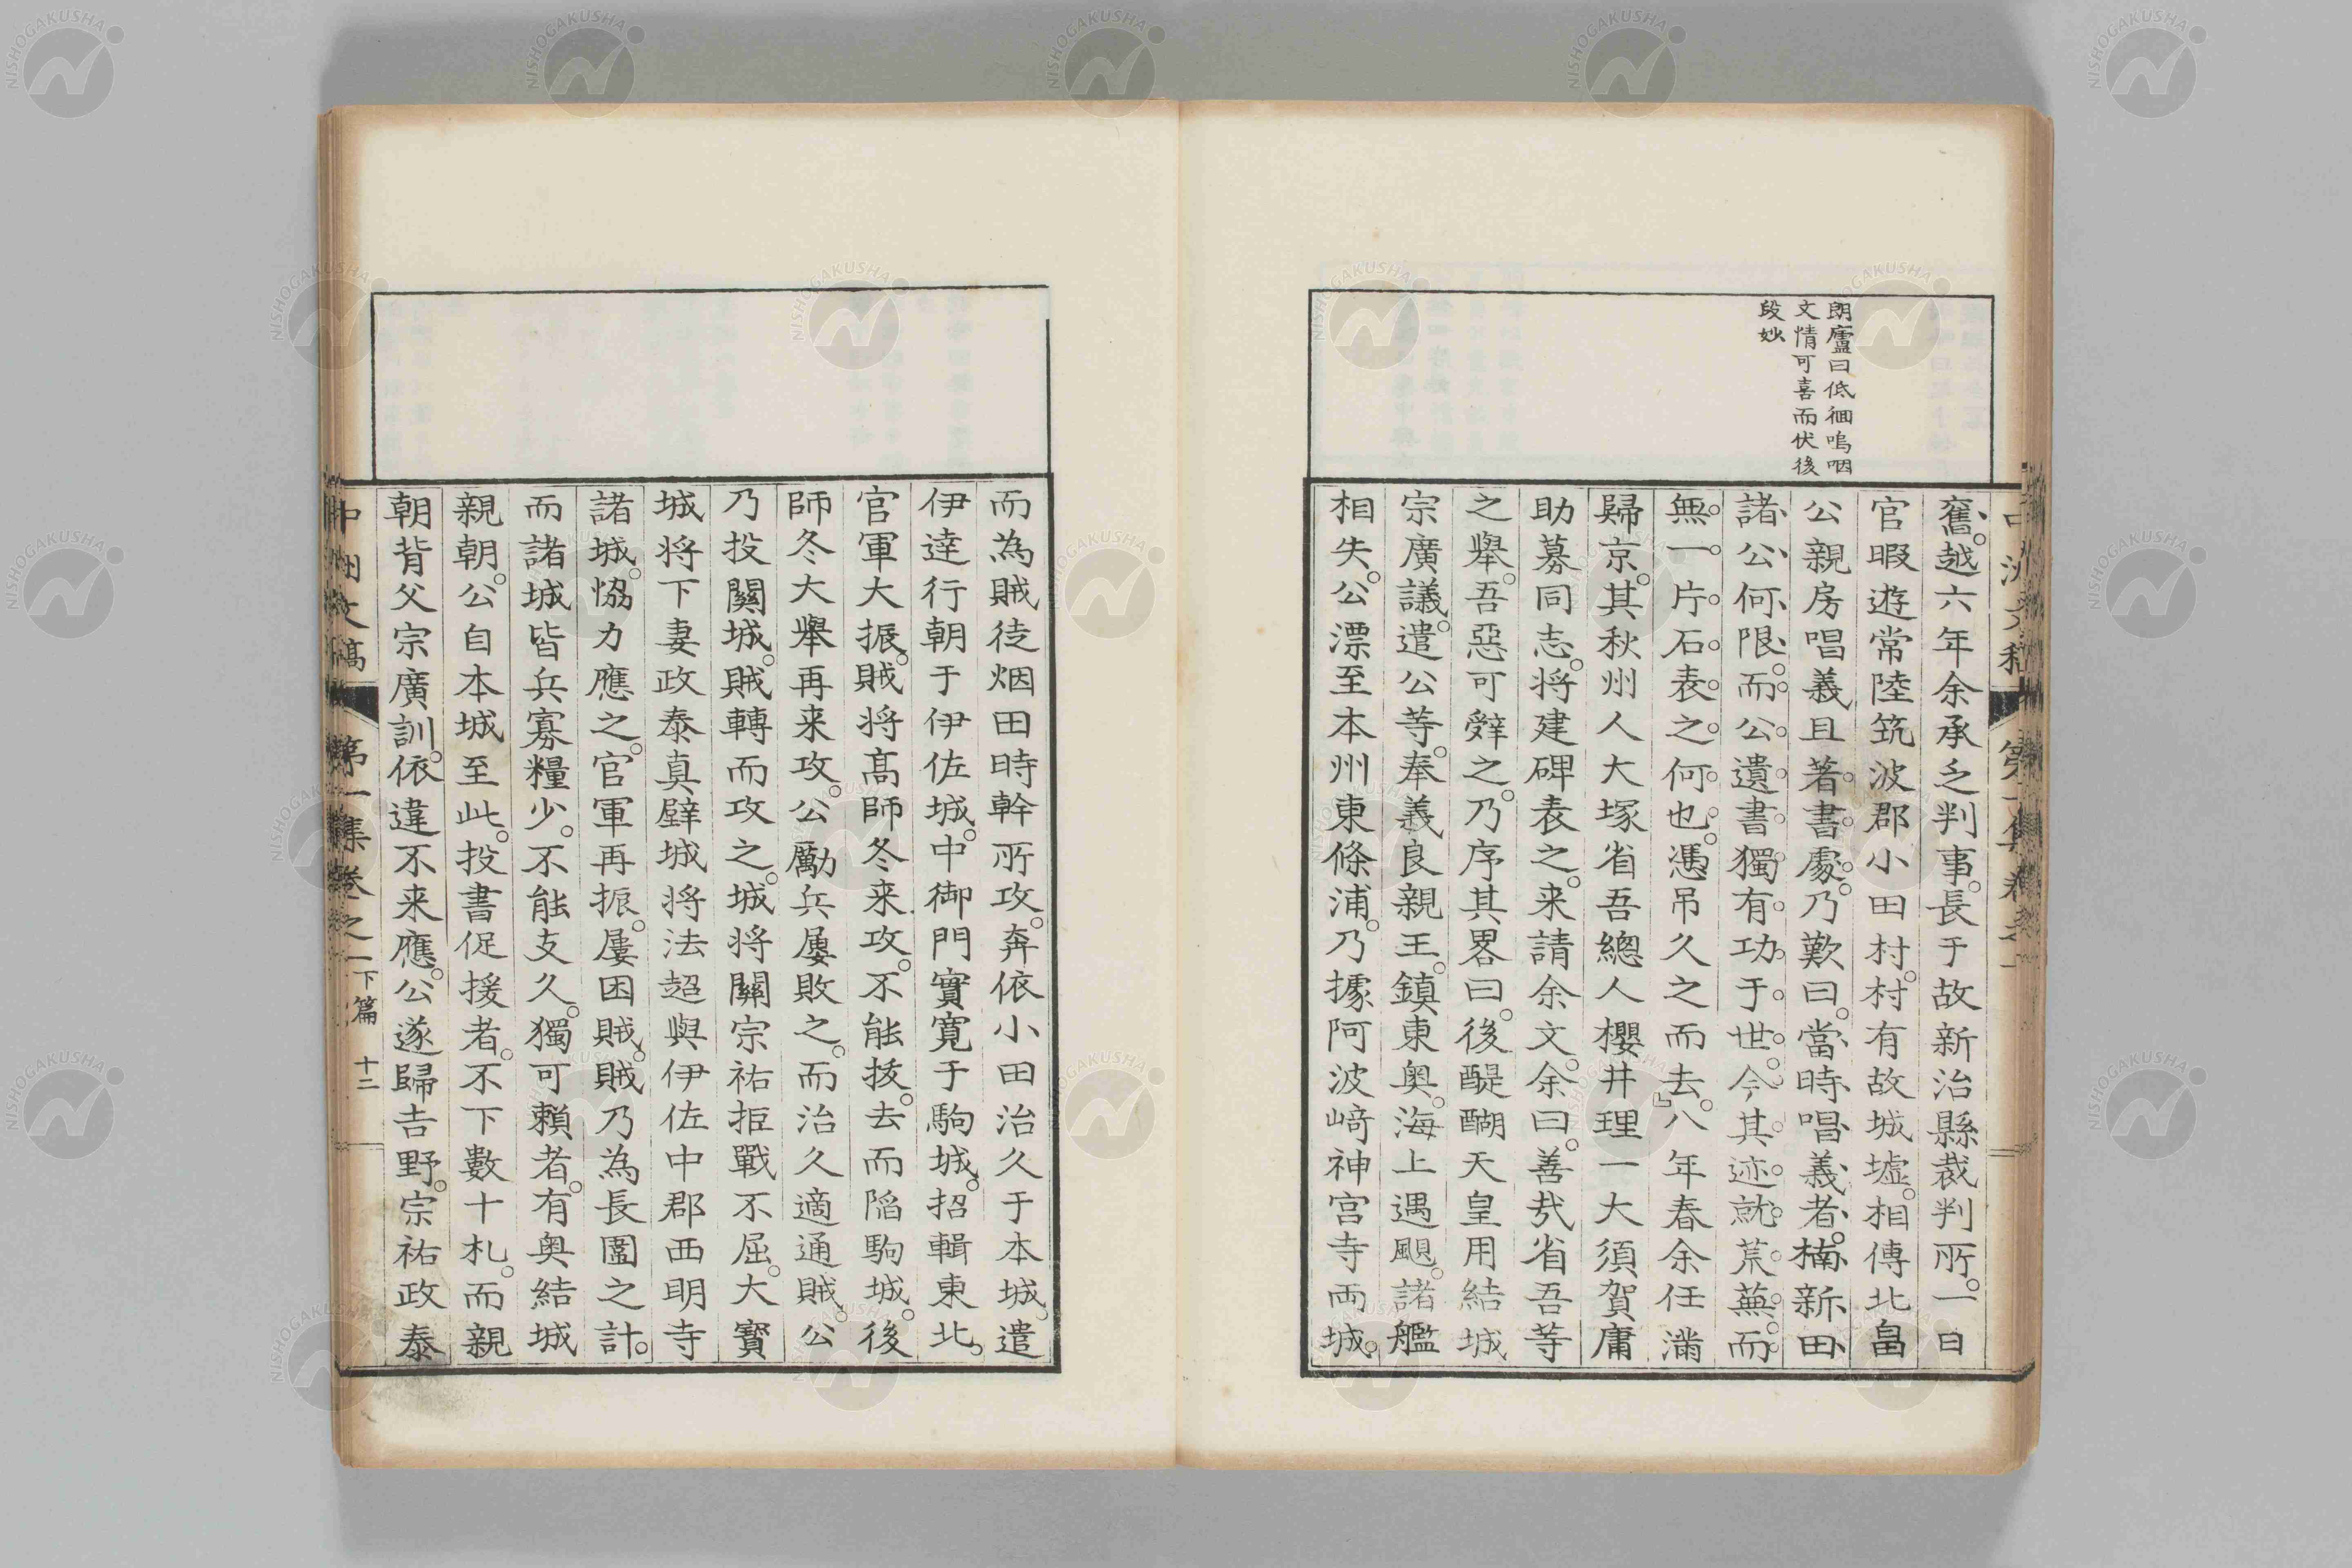 朗廬曰低徊嗚咽
文情可喜而伏後
段妙
奮。越六年余承乏判事。長于故新治縣裁判所。一日
官暇遊常陸筑波郡小田村。村有故城墟。相傳北畠
公親房唱義且著書處。乃歎曰。當時唱義者。楠新田
諸公何限。而公遺書獨有功于世。今其迹就荒蕪。而
無一片石表之何也。憑吊久之而去。」八年春余任滿
歸京。其秋州人大塚省吾總人櫻井理一大須賀庸
助募同志。將建碑表之。来請余文。余曰。善哉省吾等
之舉。吾惡可辭之。乃序其畧曰。後醍醐天皇用結城
宗廣議。遣公等。奉義良親王。鎮東奥。海上遇颶。諸艦
相失。公漂至本州東條浦。乃據阿波﨑神宮寺両城。
而為賊徒烟田時幹所攻。奔依小田治久于本城。遣
伊達行朝于伊佐城。中御門實寛于駒城。招輯東北。
官軍大振。賊将髙師冬来攻。不能拔。去而陷駒城。後
師冬大舉再来攻。公勵兵屢敗之。而治久適通賊。公
乃投關城。賊轉而攻之。城将關宗祐拒戰不屈。大寳
城将下妻政泰真壁城将法超與伊佐中郡西明寺
諸城。恊力應之。官軍再振。屢困賊。賊乃為長圍之計。
而諸城皆兵寡糧少。不能支久。獨可頼者。有奥結城
親朝。公自本城至此。投書促援者。不下數十札。而親
朝背父宗廣訓。依違不来應。公遂歸吉野。宗祐政泰
中洲文稿 第一集卷之一下篇 十二